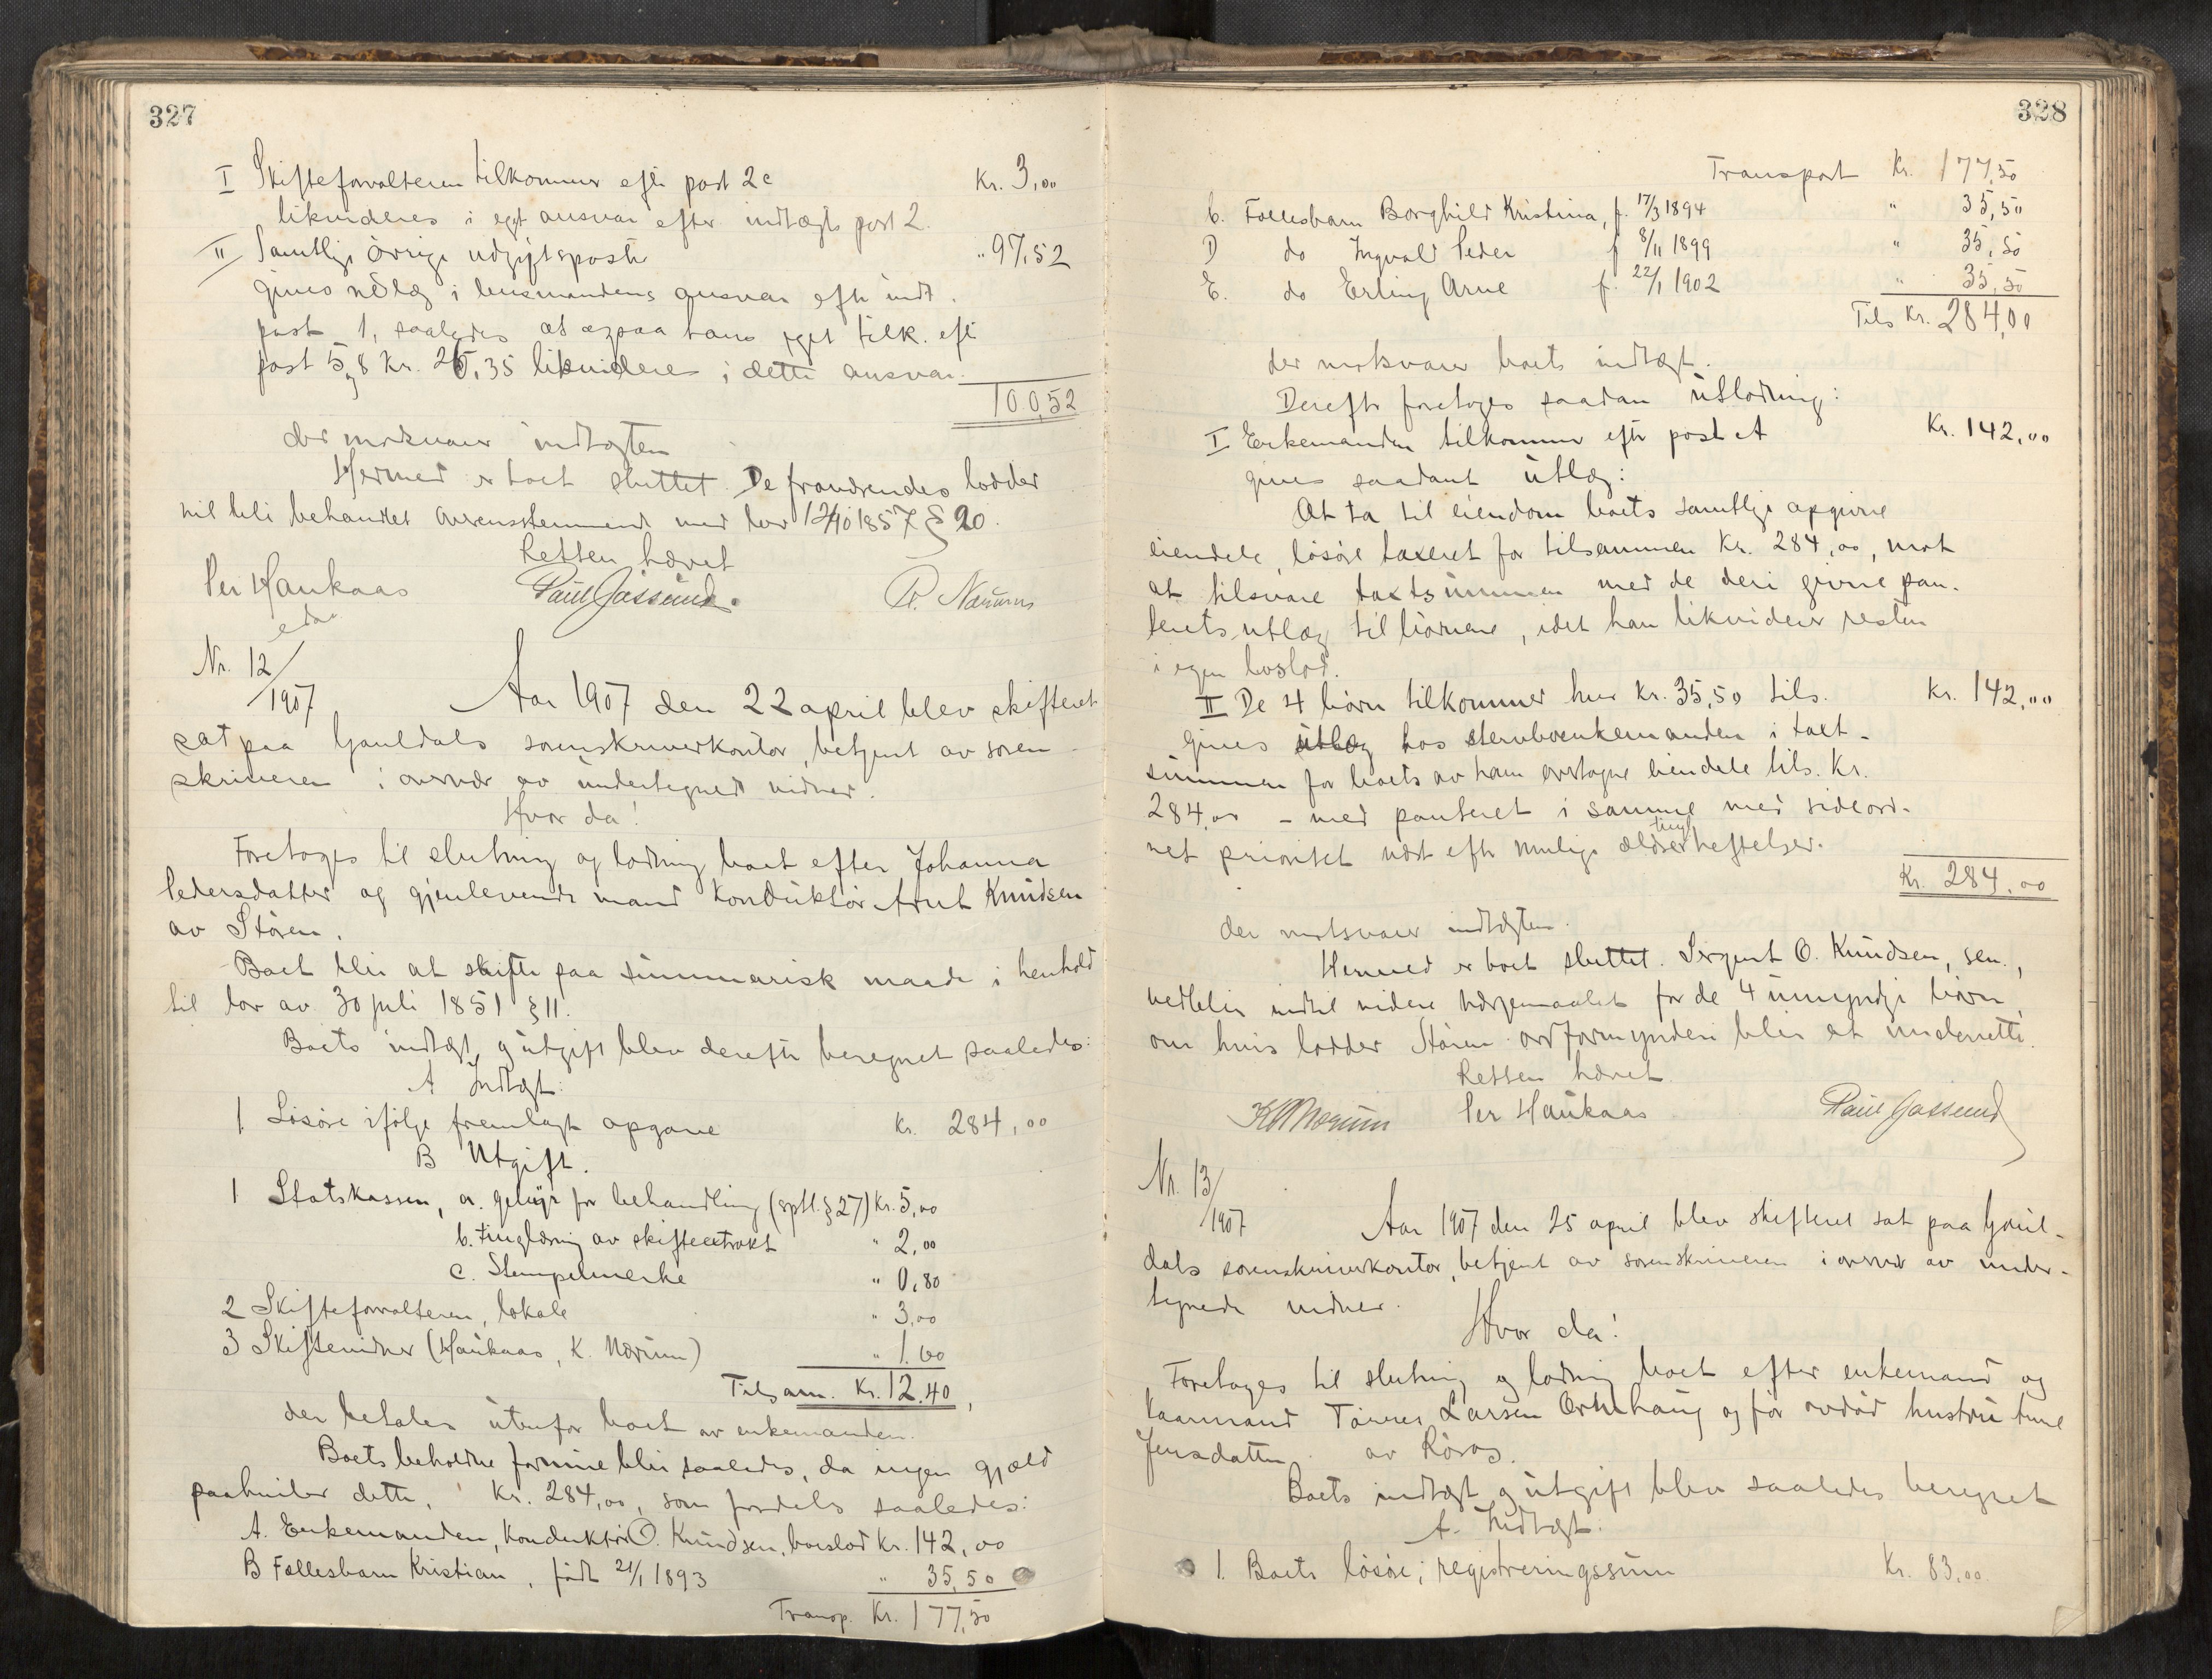 327
I Skifteforvalteren tilkommer efter post 2c Kr. 3,00
likvideres i eget ansvar efter indtægts post 2.
II Samtlige övrige udgiftsposter " 97,52
gives utlæg i busmandens ansvar efter indt.
post 1, saaledes at ogsaa hans eget tilk. efter
post 5 og 8 Kr. 25,35 likvideres i dette ansvar.
100,52
der motsvarer indtægten
Hermed er boet sluttet. De fraværendes lodder
vil bli behandlet overensstemmende med lov 12/10 1857 § 20.
Retten hævet
Per Haukaas Paul Gassund. P. Nærum
Nr. 12/1907
Aar 1907 den 22 april blev skifteret
sat paa Gauldals sorenskriverkontor, betjent av soren-
skriveren i overvær av undertegnede vidner.
Hvor da!
Foretoges til slutning og lodning boet efter Johanna
Pedersdatter og gjenlevende mand konduktör Arnt Knudsen
av Stören.
Boet blir at skifte paa summarisk maade i henhold
til lov av 30 juli 1851 § 11.
Boets indtægt og utgift blev derefter beregnet saaledes:
A Indtægt:
1 Lösöre ifölge fremlagt opgave Kr. 284,00
B Utgift.
1 Statskassen, a. gebyr for behandling (sptl. § 27) Kr. 5,00
b. Tinglæsning av skifteextrakt " 2,00
c. Stempelmerke " 0,80
2 Skifteforvalteren, lokale " 3,00
3 Skiftevidner (Haukaas, K. Nærum) " 1.60
Tilsam. Kr. 12.40,
der betales utenfor boet av enkemanden.
Boets beholdne formue blir saaledes, da ingen gjæld
paahviler dette, Kr. 284,00, som fordeles saaledes:
A. Enkemanden, konduktör O. Knudsen, boeslod Kr. 142,00
B Fællesbarn Kristian, födt 21/1 1893 " 35,50
Transp. Kr. 177,50
328
Transport Kr. 177,50
C. Fællesbarn Borghild Kristina, f. 17/3 1894 " 35,50
D do Ingvald Peder f 8/11 1899 " 35,50
E. do Erling Arne f. 22/1 1902 " 35,50
Tils Kr. 284,00
der motsvarer boets indtægt.
Derefter foretoges saadan utlodning:
I Enkemanden tilkommer efter post A Kr. 142,00
gives saadant utlæg:
At ta til eiendom boets samtlige opgivne
eiendele, lösöre taxeret for tilsammen Kr. 284,00, mot
at tilsvare taxtsummen med de deri givne pan-
terets utlæg til börnene, idet han likviderer resten
i egen boslod.
II De 4 börn tilkommer hver Kr. 35,50 tils. Kr. 142,00
gives utlæg hos stervboenkemanden i taxt-
summen for boets av ham overtagne eiendele tils. Kr.
284,00 - med panteret i samme med sideord-
net prioritet næst efter mulige ældre tingl. heftelser.
Kr. 284,00
der motsvarer indtægten.
Hermed er boet sluttet. Sergent O. Knudsen, sen.,
vedblir indtil videre værgemaalet for de 4 umyndige börn,
om hvis lodder Stören overformynderi blir at underrette.
Retten hævet
K Nærum Per Haukaas Paul Gassund
Nr. 13/1907
Aar 1907 den 25 april blev skifteret sat paa Gaul-
dals sorenskriverkontor, betjent av sorenskriveren i overvær av under-
tegnede vidner.
Hvor da!
Foretoges til slutning og lodning boet efter enkemand og
kaarmand Larsen og för avdöd hustru
Jensdatter av Röros.
Boets indtægt og utgift blev saaledes beregnet
A. Indtægt:
1. Boets lösöre; registreringssum Kr. 83,00.